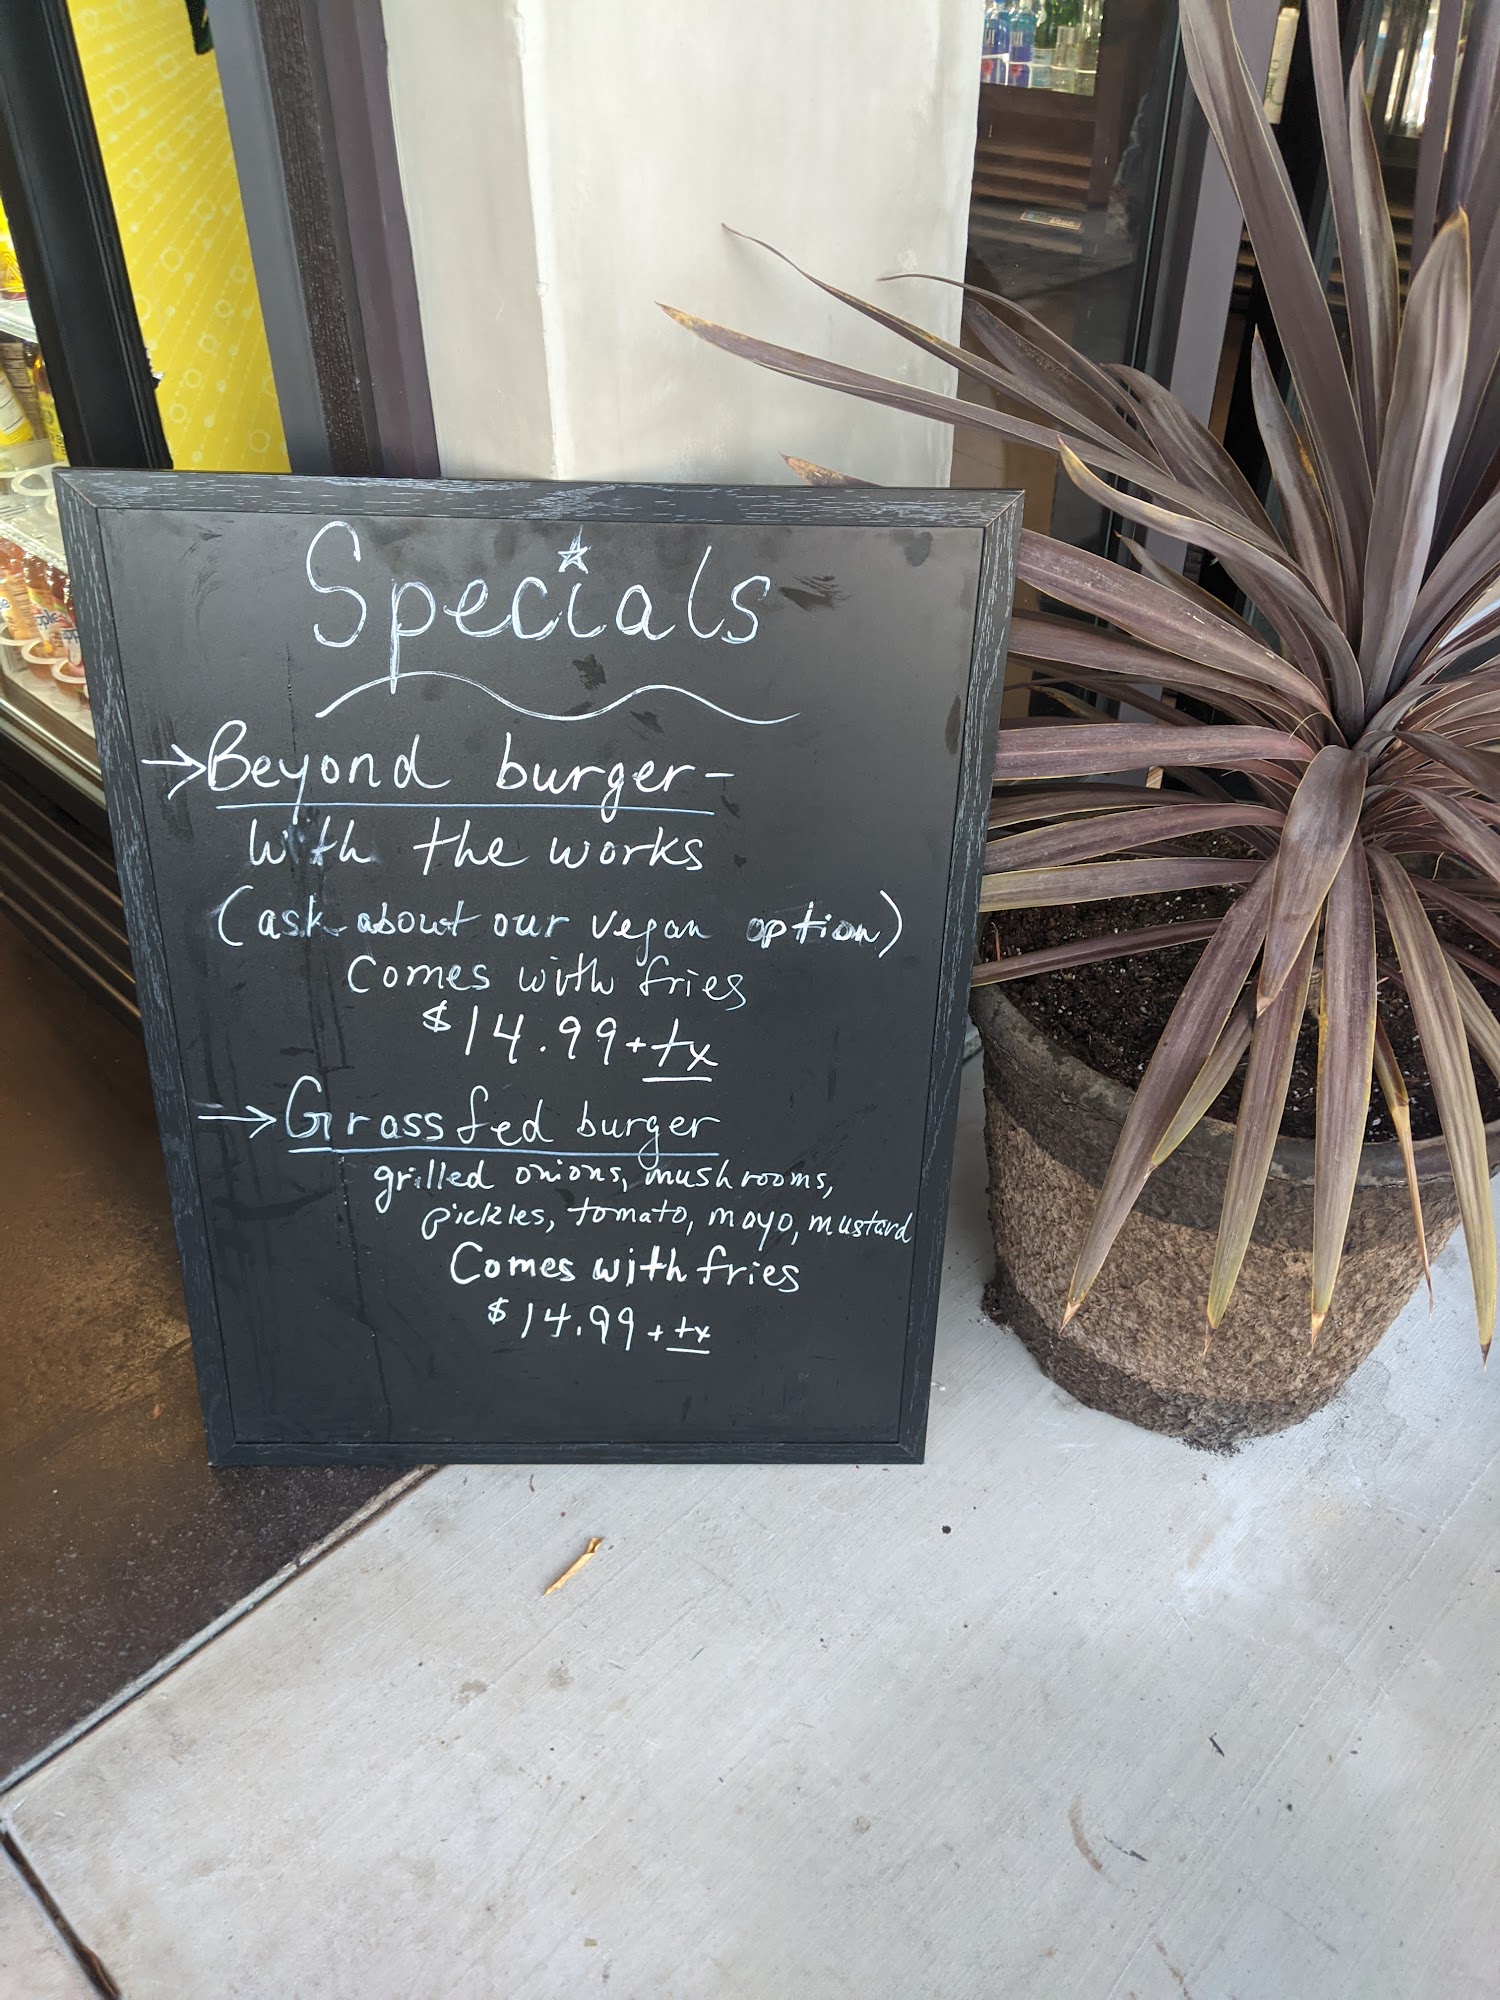 Specials
→Beyond burger-
With the works
(ask about our vegan option)
Comes with fries
$14.99+tx
→Grassfed burger
grilled onions, mushrooms,
pickles, tomato, mayo, mustard
Comes with fries
$14.99+tx